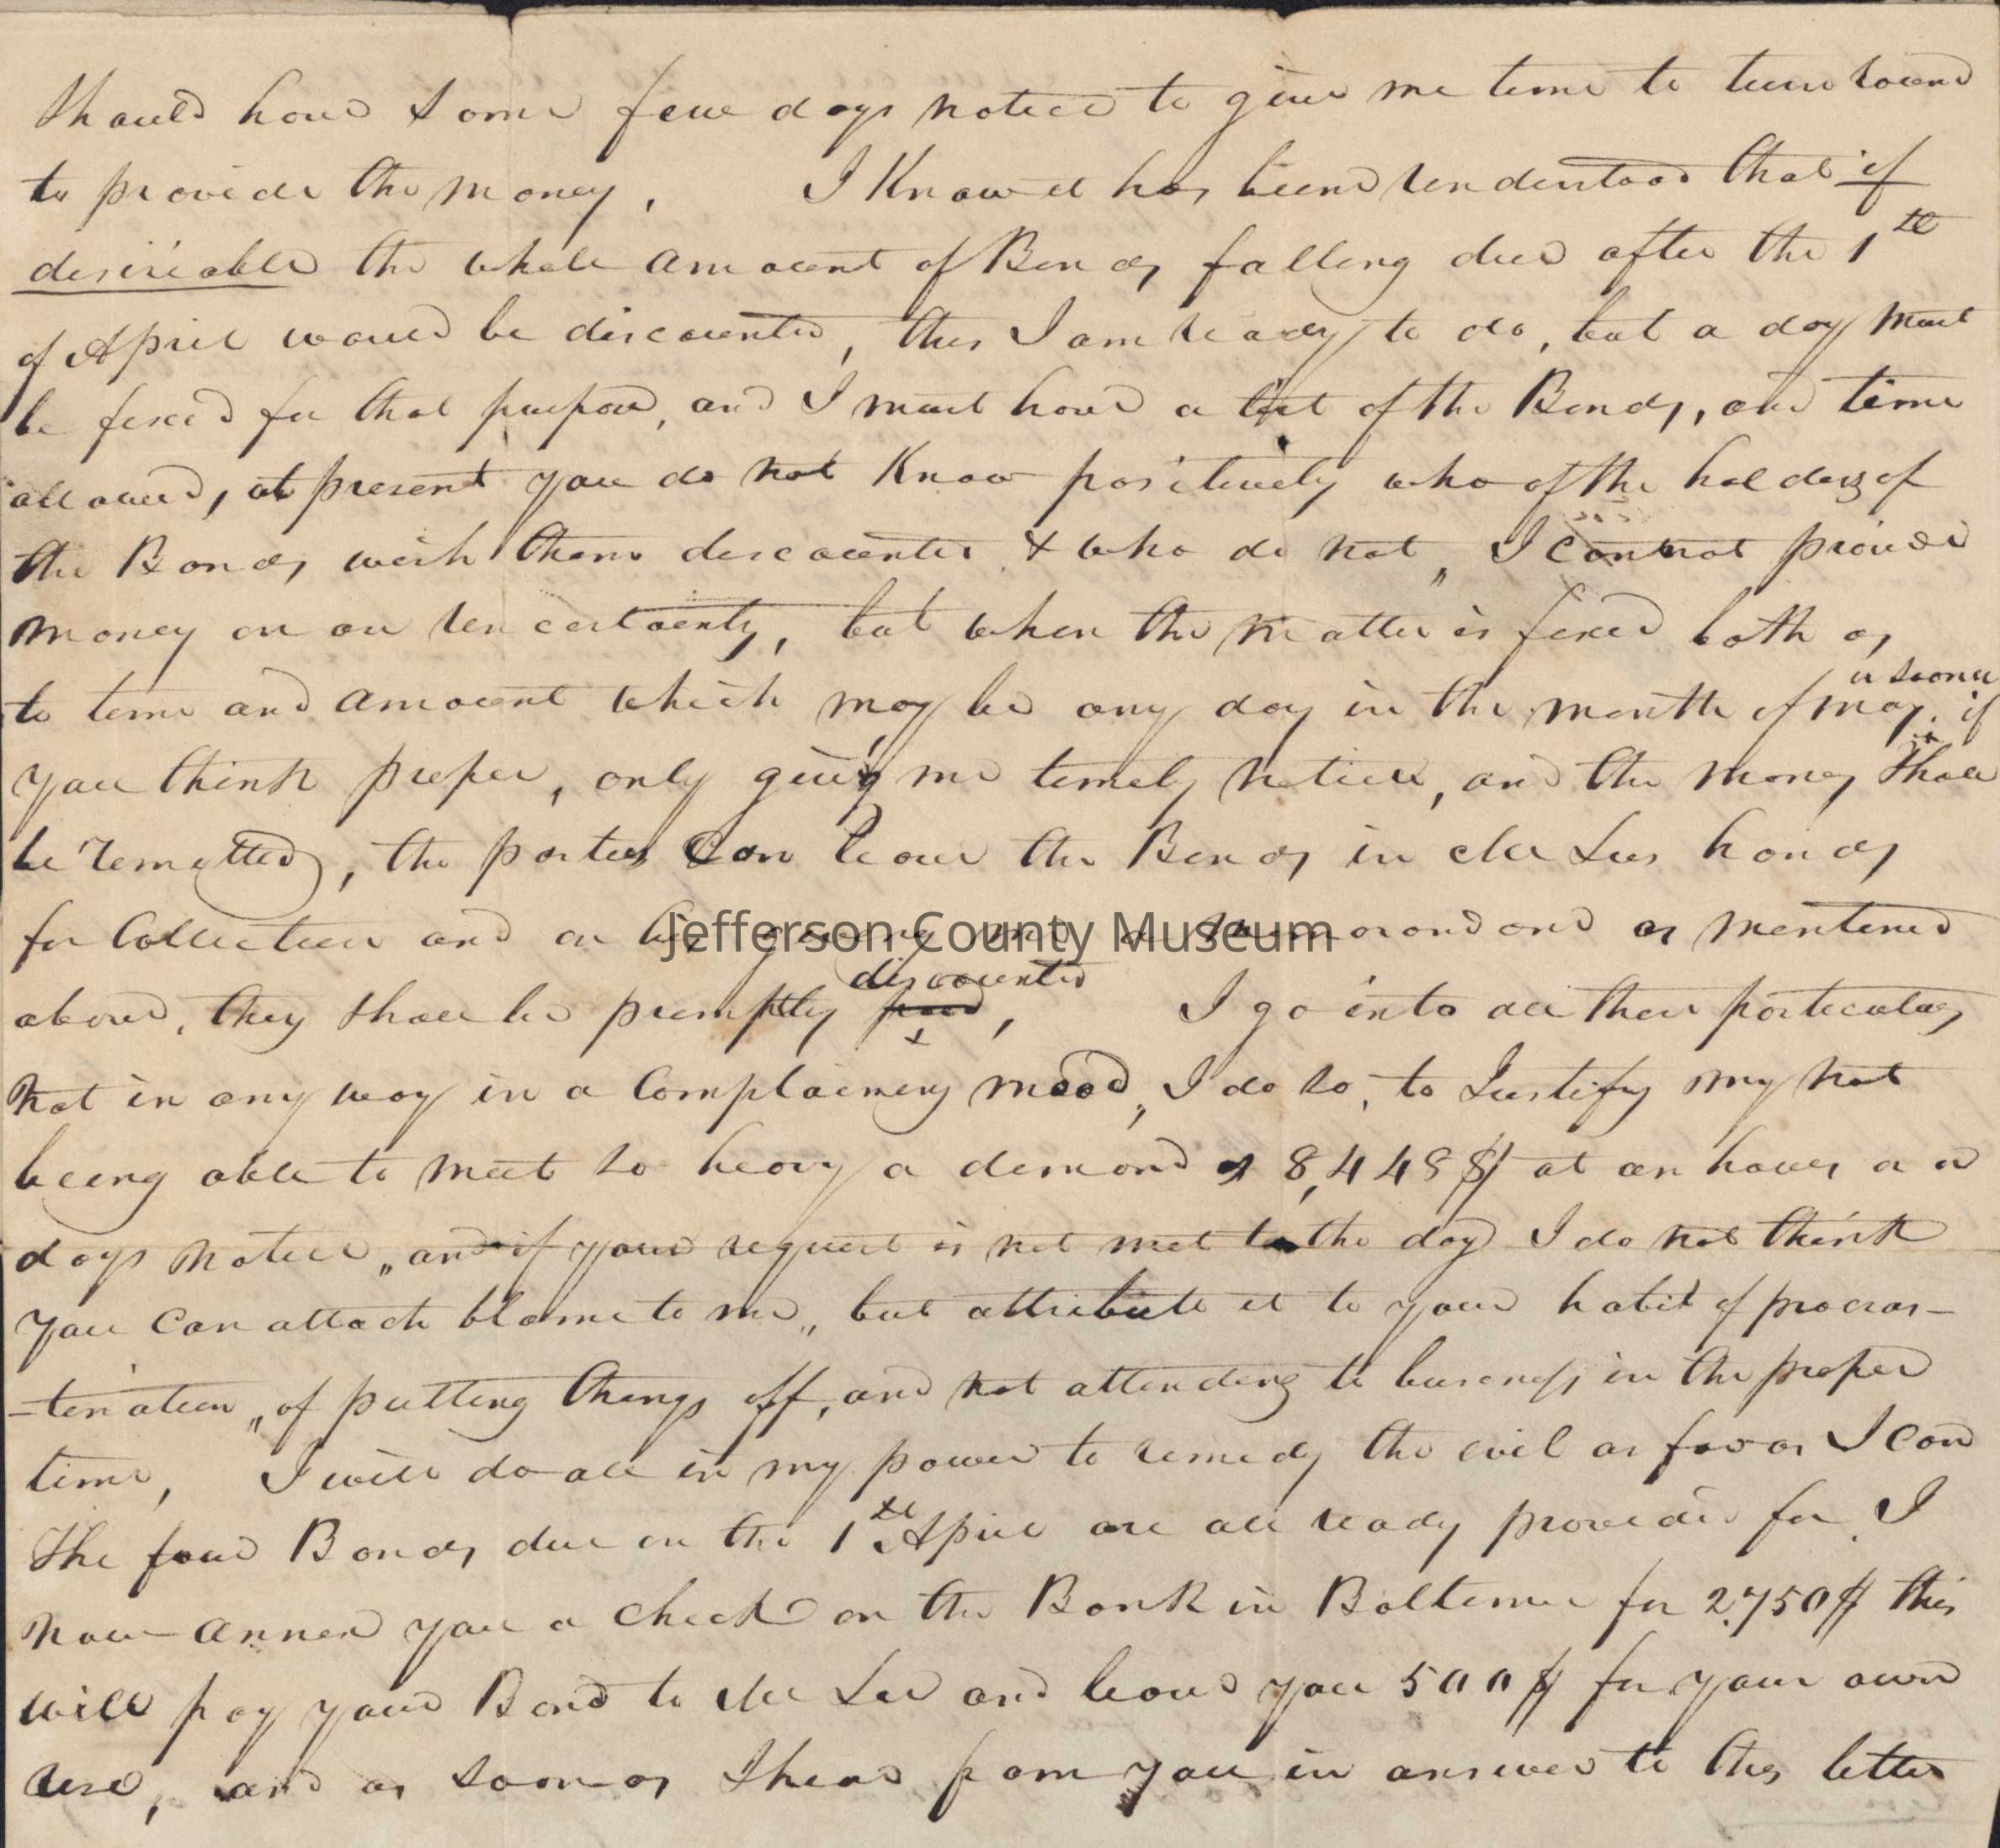 Should have some few days notice to give me time to turn round
to provide the money, I Know it has been understood that if
desireable the whole amount of Bonds falling due after the 1st
of April would be discounted, this I am ready to do, but a day must
be fixed for that purpose, and I must have a list of the Bonds, and time
allowed, at present you do not Know positively who of the holders of
the Bonds wish them discounted & who do not, I cannot provide
money on an uncertainty, but when the matter is fixed both as
to time and amount which may be any day in the month of may, or sooner if
you think proper, only giving me timely notice, and the money shall
be remitted, the parties Can leave the Bonds in Mr Lees hands
for Collection and on his giving me a memorandand as mentioned
above, they shall be promptly paid discounted, I go into all these particulars
not in any way in a Complaining mood, I do so, to Justify my not
being able to meet so heavy a demand as 8,448$ at an hours or a
days notice, and if your request is not met to the day I do not think
you Can attach blame to me, but attribute it to your habit of procras-
-tination, of putting things off, and not attending to business in the proper
time, I will do all in my power to remedy the evil as far as I can
The four Bonds due on the 1st April are all ready provided for. I
now annex you a Check on the Bank in Baltimore for 2,750$ this
will pay your Bond to Mr Lee and leave you 500$ for your own
use, and as soon as I hear from you in answer to this letter
Jefferson County Museum